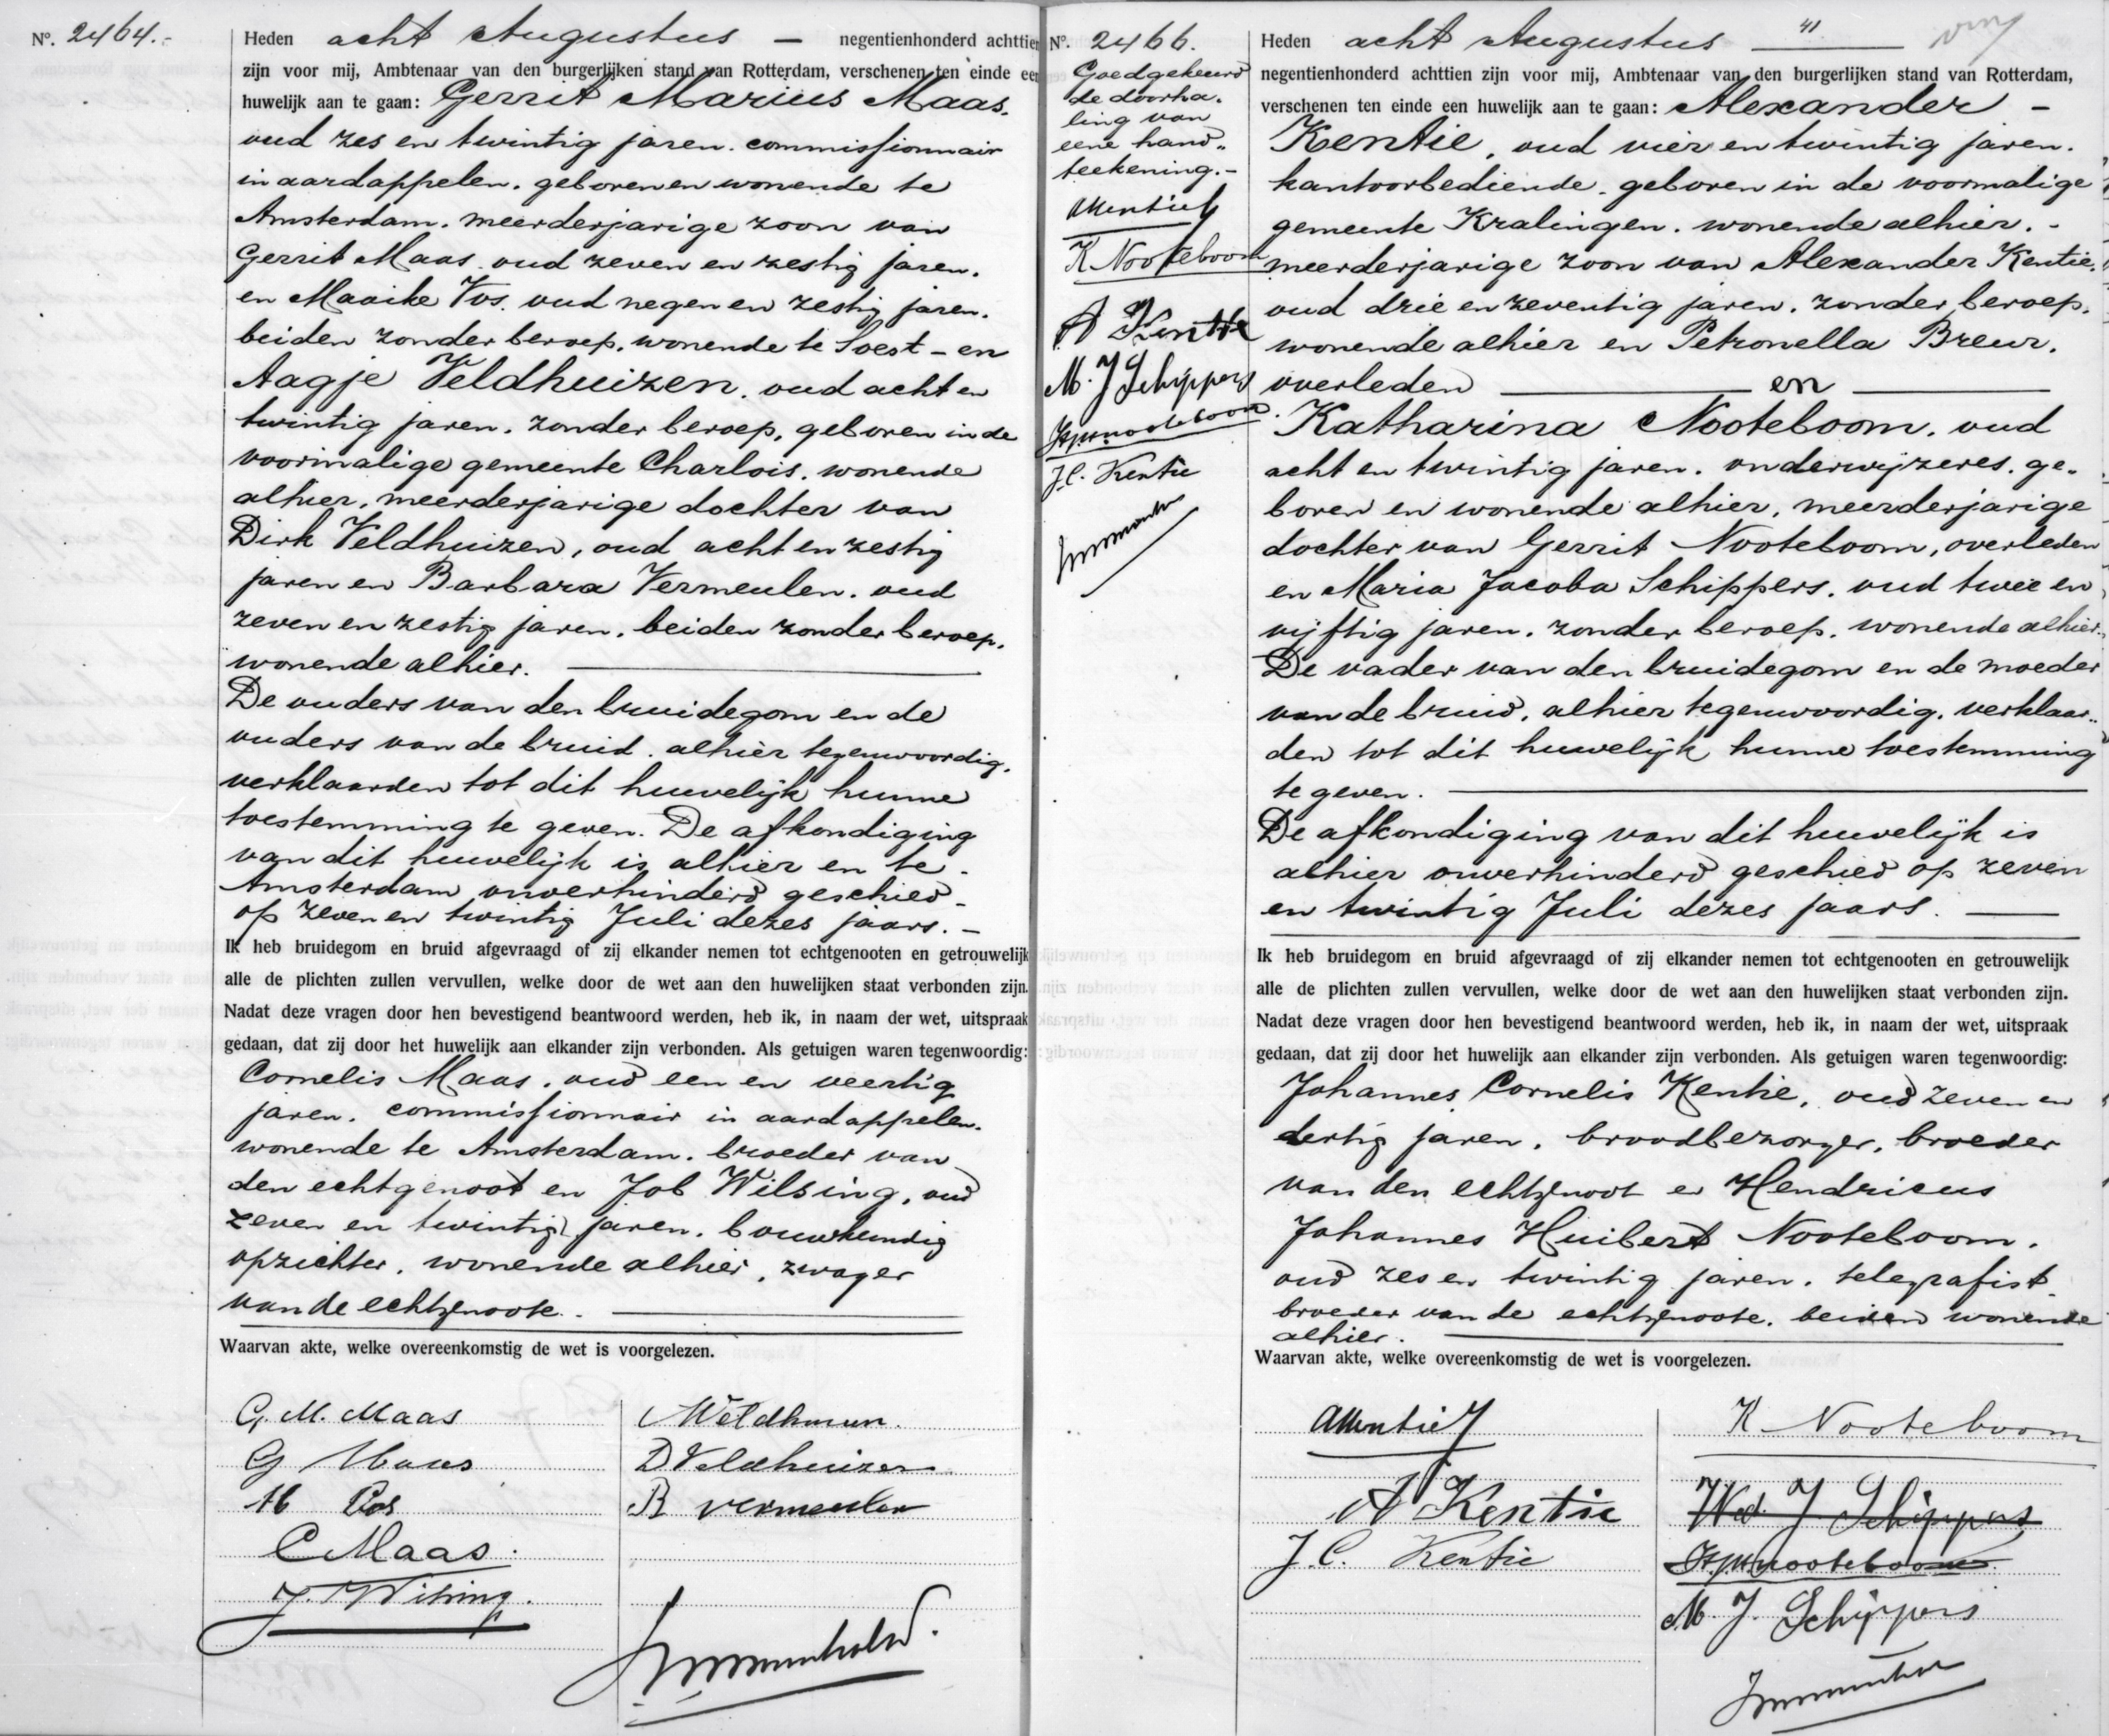 No. 2464.-
Heden acht Augustus — negentienhonderd achttien
zijn voor mij, Ambtenaar van den burgerlijken stand van Rotterdam, verschenen ten einde een
huwelijk aan te gaan: Gerrit Marius Maas.
oud zes en twintig jaren. commissionnair
in aardappelen. geboren en wonende te
Amsterdam. meerderjarige zoon van
Gerrit Maas oud zeven en zestig jaren.
en Maaike Vos. oud negen en zestig jaren.
beiden zonder beroep. wonende te Soest - en
Aagje Veldhuizen. oud acht en
twintig jaren. zonder beroep, geboren in de
voormalige gemeente Charlois. wonende
alhier, meerderjarige dochter van
Dirk Veldhuizen, oud acht en zestig
jaren en Barbara Vermeulen. oud
zeven en zestig jaren. beiden zonder beroep.
wonende alhier.
De ouders van den bruidegom en de
ouders van de bruid. alhier tegenwoordig.
verklaarden tot dit huwelijk hunne
toestemming te geven. De afkondiging
van dit huwelijk is alhier en te
Amsterdam onverhinderd geschied
op zeven en twintig Juli dezes jaars. -
Ik heb bruidegom en bruid afgevraagd of zij elkander nemen tot echtgenooten en getrouwelijk
alle de plichten zullen vervullen, welke door de wet aan den huwelijken staat verbonden zijn.
Nadat deze vragen door hen bevestigend beantwoord werden, heb ik, in naam der wet, uitspraak
gedaan, dat zij door het huwelijk aan elkander zijn verbonden. Als getuigen waren tegenwoordig:
Cornelis Maas. oud een en veertig
jaren. commissionnair in aardappelen.
wonende te Amsterdam. broeder van
den echtgenoot en Job Wilsing. oud
zeven en twintig jaren. bouwkundig
opzichter. wonende alhier, zwager
van de echtgenoote.
Waarvan akte, welke overeenkomstig de wet is voorgelezen.
G. M. Maas
G Maas
M Vos
C Maas.
J. Wilsing.
D Veldhuizen
B vermeulen
No. 2466.
Goedgekeurd
de doorha-
ling van
eene hand-
teekening.-
K Nooteboom
A Kentie
M. J Schippers
J. C. Kentie
41
Heden acht Augustus
negentienhonderd achttien zijn voor mij, Ambtenaar van den burgerlijken stand van Rotterdam,
verschenen ten einde een huwelijk aan te gaan: Alexander -
Kentie, oud vier en twintig jaren.
kantoorbediende. geboren in de voormalige
gemeente Kralingen. wonende alhier. -
meerderjarige zoon van Alexander Kentie.
oud drie en zeventig jaren. zonder beroep.
wonende alhier en Petronella Breur.
overleden — en —
Katharina Nooteboom. oud
acht en twintig jaren. onderwijzeres. ge-
boren en wonende alhier, meerderjarige
dochter van Gerrit Nooteboom, overleden
en Maria Jacoba Schippers. oud twee en
vijftig jaren. zonder beroep. wonende alhier.
De vader van den bruidegom en de moeder
van de bruid. alhier tegenwoordig. verklaar-
den tot dit huwelijk hunne toestemming
te geven.
De afkondiging van dit huwelijk is
alhier onverhinderd geschied op zeven
en twintig Juli dezes jaars.
Ik heb bruidegom en bruid afgevraagd of zij elkander nemen tot echtgenooten en getrouwelijk
alle de plichten zullen vervullen, welke door de wet aan den huwelijken staat verbonden zijn.
Nadat deze vragen door hen bevestigend beantwoord werden, heb ik, in naam der wet, uitspraak
gedaan, dat zij door het huwelijk aan elkander zijn verbonden. Als getuigen waren tegenwoordig:
Johannes Cornelis Kentie, oud zeven en
dertig jaren. broodbezorger, broeder
van den echtgenoot en Hendricus
Johannes Huibert Nooteboom.
oud zes en twintig jaren. telegrafist
broeder van de echtgenoote. beiden wonende
alhier.
Waarvan akte, welke overeenkomstig de wet is voorgelezen.
A Kentie
J. C. Kentie
K Nooteboom
Wed. J Schippers
M. J. Schippers